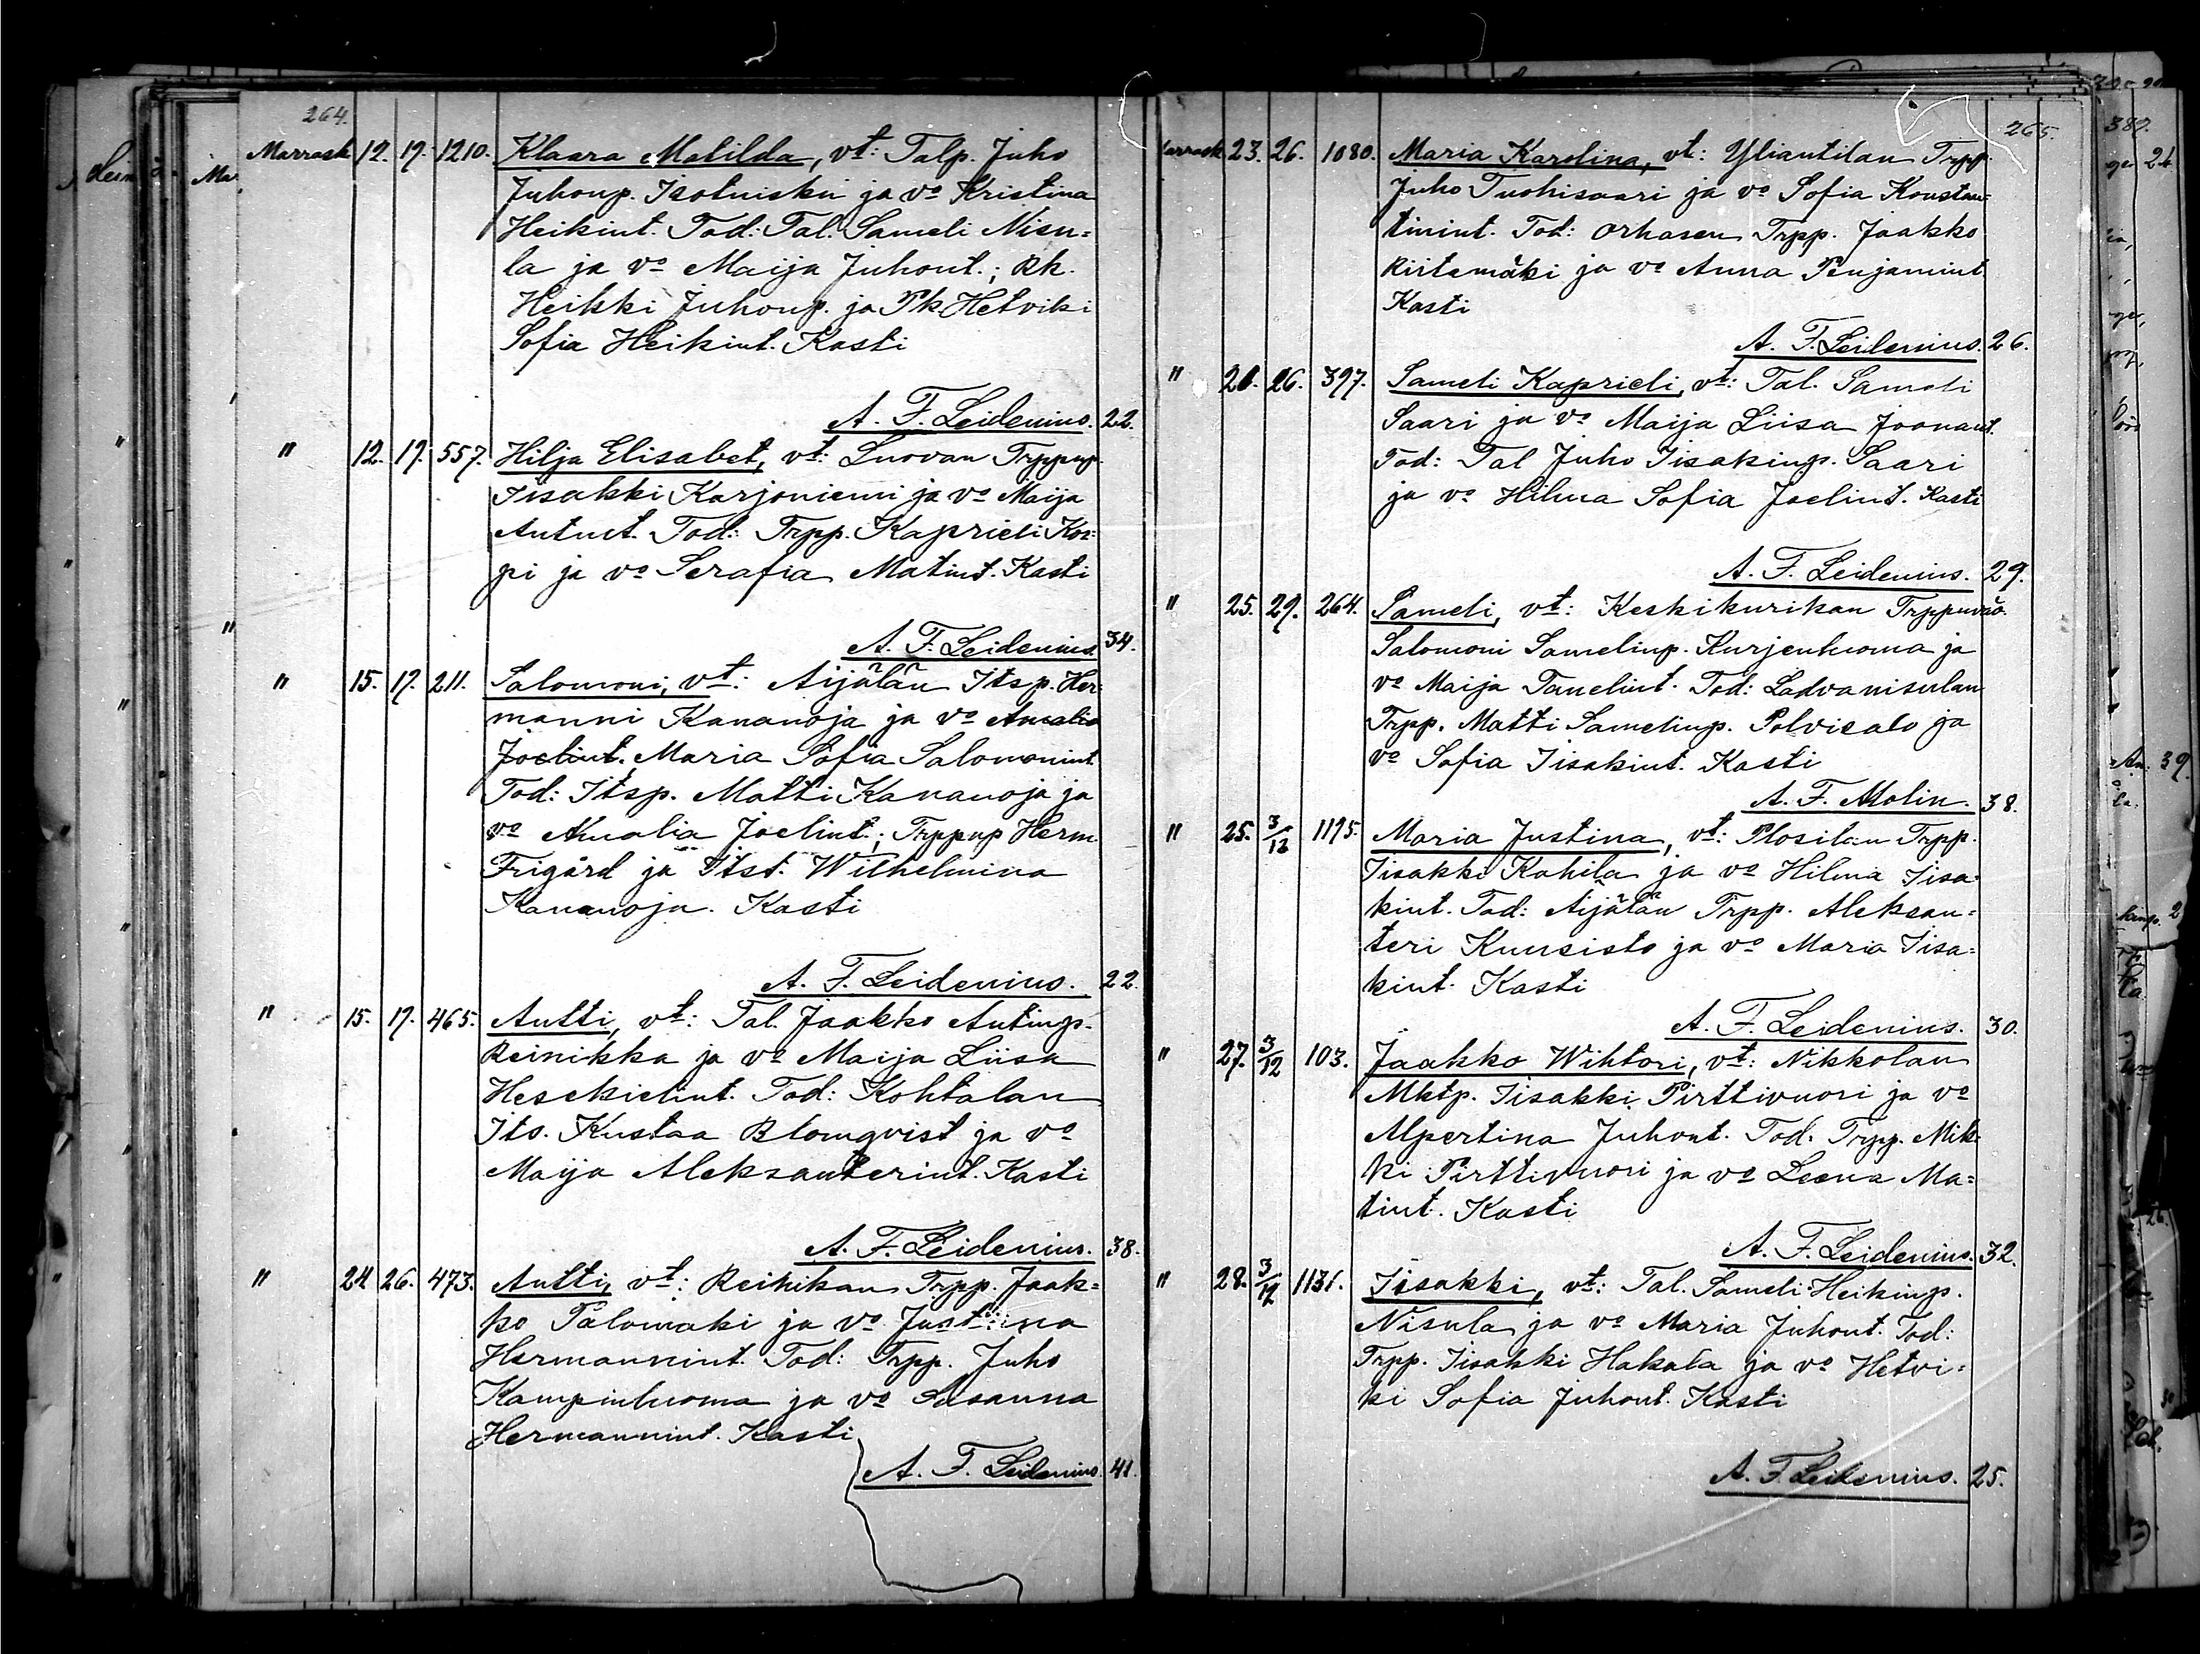 264.
Marrask 12. 17. 1210. Klaara Matilda, vt: Talp. Juho
Juhonp. Isotuisku ja vo Kristina
Heikint. Tod: Tal. Sameli Nisu=
la ja vo Maija Juhont.; Rk.
Heikki Juhonp. ja Pk Hetviki
Sofia Heikint. Kasti
A. F. Leidenius. 22.
" 12. 17. 557. Hilja Elisabet, vt: Luovan Trppup.
Iisakki Karjaniemi ja vo Maija
Antint. Tod: Trpp. Kaprieli Kor=
pi ja vo Serafia Matint. Kasti
A. F. Leidenius. 34.
" 15. 17. 211. Salomoni, vt: Äijälän Itsp. Her=
manni Kananoja ja vo Amalia
Joelint. Maria Sofia Salomonint.
Tod: Itsp. Matti Kananoja ja
vo Amalia Joelint.; Trppup Herm.
Frigård ja Itst. Wilhelmina
Kananoja. Kasti
A. F. Leidenius. 22.
" 15. 17. 465. Antti, vt: Tal. Jaakko Antinp.
Reinikka ja vo Maija Liisa
Hesekielint. Tod: Kohtalan
Its. Kustaa Blomqvist ja vo
Maija Aleksanterint. Kasti
A. F. Leidenius. 38.
" 24 26. 473. Antti, vt: Reinikan Trpp. Jaak=
ko Palomäki ja vo Justiina
Hermannint. Tod: Trpp. Juho
Kampinluoma ja vo Susanna
Hermannint. Kasti
A. F. Leidenius. 41.
265.
Marrask 23. 26. 1080. Maria Karolina, vt: Yliantilan Trpp.
Juho Tuohisaari ja vo Sofia Konstan=
tinint. Tod: Orhasen Trpp. Jaakko
Riitamäki ja vo Anna Penjamint.
Kasti
A. F. Leidenius. 26.
" 20. 26. 397. Sameli Kaprieli, vt: Tal. Sameli
Saari ja vo Maija Liisa Joonant.
Tod: Tal Juho Iisakinp. Saari
ja vo Hilma Sofia Joelint. Kasti
A. F. Leidenius. 29.
" 25. 29. 264. Sameli, vt: Keskikurikan Trppuväo.
Salomoni Samelinp. Kurjenluoma ja
vo Maija Tanelint. Tod: Ladvanisulan
Trpp. Matti Samelinp. Polvisalo ja
vo Sofia Iisakint. Kasti
A. F. Molin. 38.
" 25. 3/12 1195. Maria Justina, vt: Plosilan Trpp.
Iisakki Kahila ja vo Hilma Iisa=
kint. Tod: Äijälän Trpp. Aleksan=
teri Kuusisto ja vo Maria Iisa=
kint. Kasti
A. F. Leidenius. 30.
" 27. 3/12 103. Jaakko Wihtori, vt: Nikkolan
Mktp. Iisakki Pirttivuori ja vo
Alpertina Juhont. Tod: Trpp. Mik=
ki Pirttivuori ja vo Leena Ma=
tint. Kasti
A. F. Leidenius. 32.
" 28. 3/12 1131. Iisakki, vt: Tal. Sameli Heikinp.
Nisula ja vo Maria Juhont. Tod:
Trpp. Iisakki Hakala ja vo Hetvi=
ki Sofia Juhont. Kasti
A. F. Leidenius. 25.